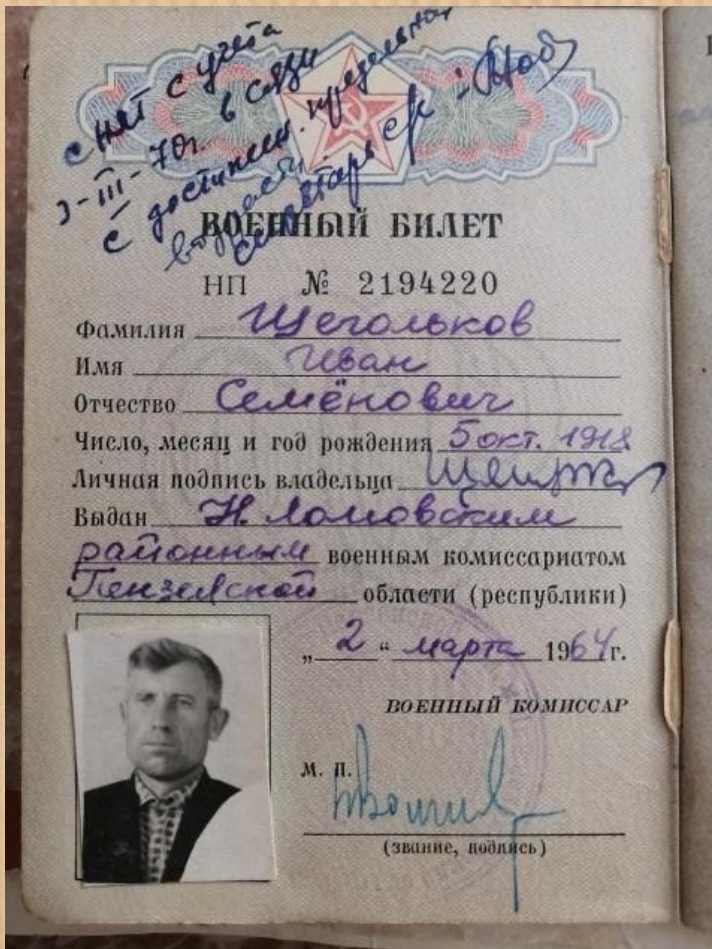 снят с учёта
3-III-70г. в связи
с достижен. предельного
возраста.
секретарь
ВОЕННЫЙ БИЛЕТ
НП № 2194220
Фамилия Щегольков
Имя Иван
Отчество Семёнович
Число, месяц и год рождения 5 окт. 1918
Личная подпись владельца
Выдан Н. Ломовским
районным военным комиссариатом
Пензенской области (республики)
„2“ марта 1964г.
ВОЕННЫЙ КОМИССАР
М. П.
(звание, подпись)